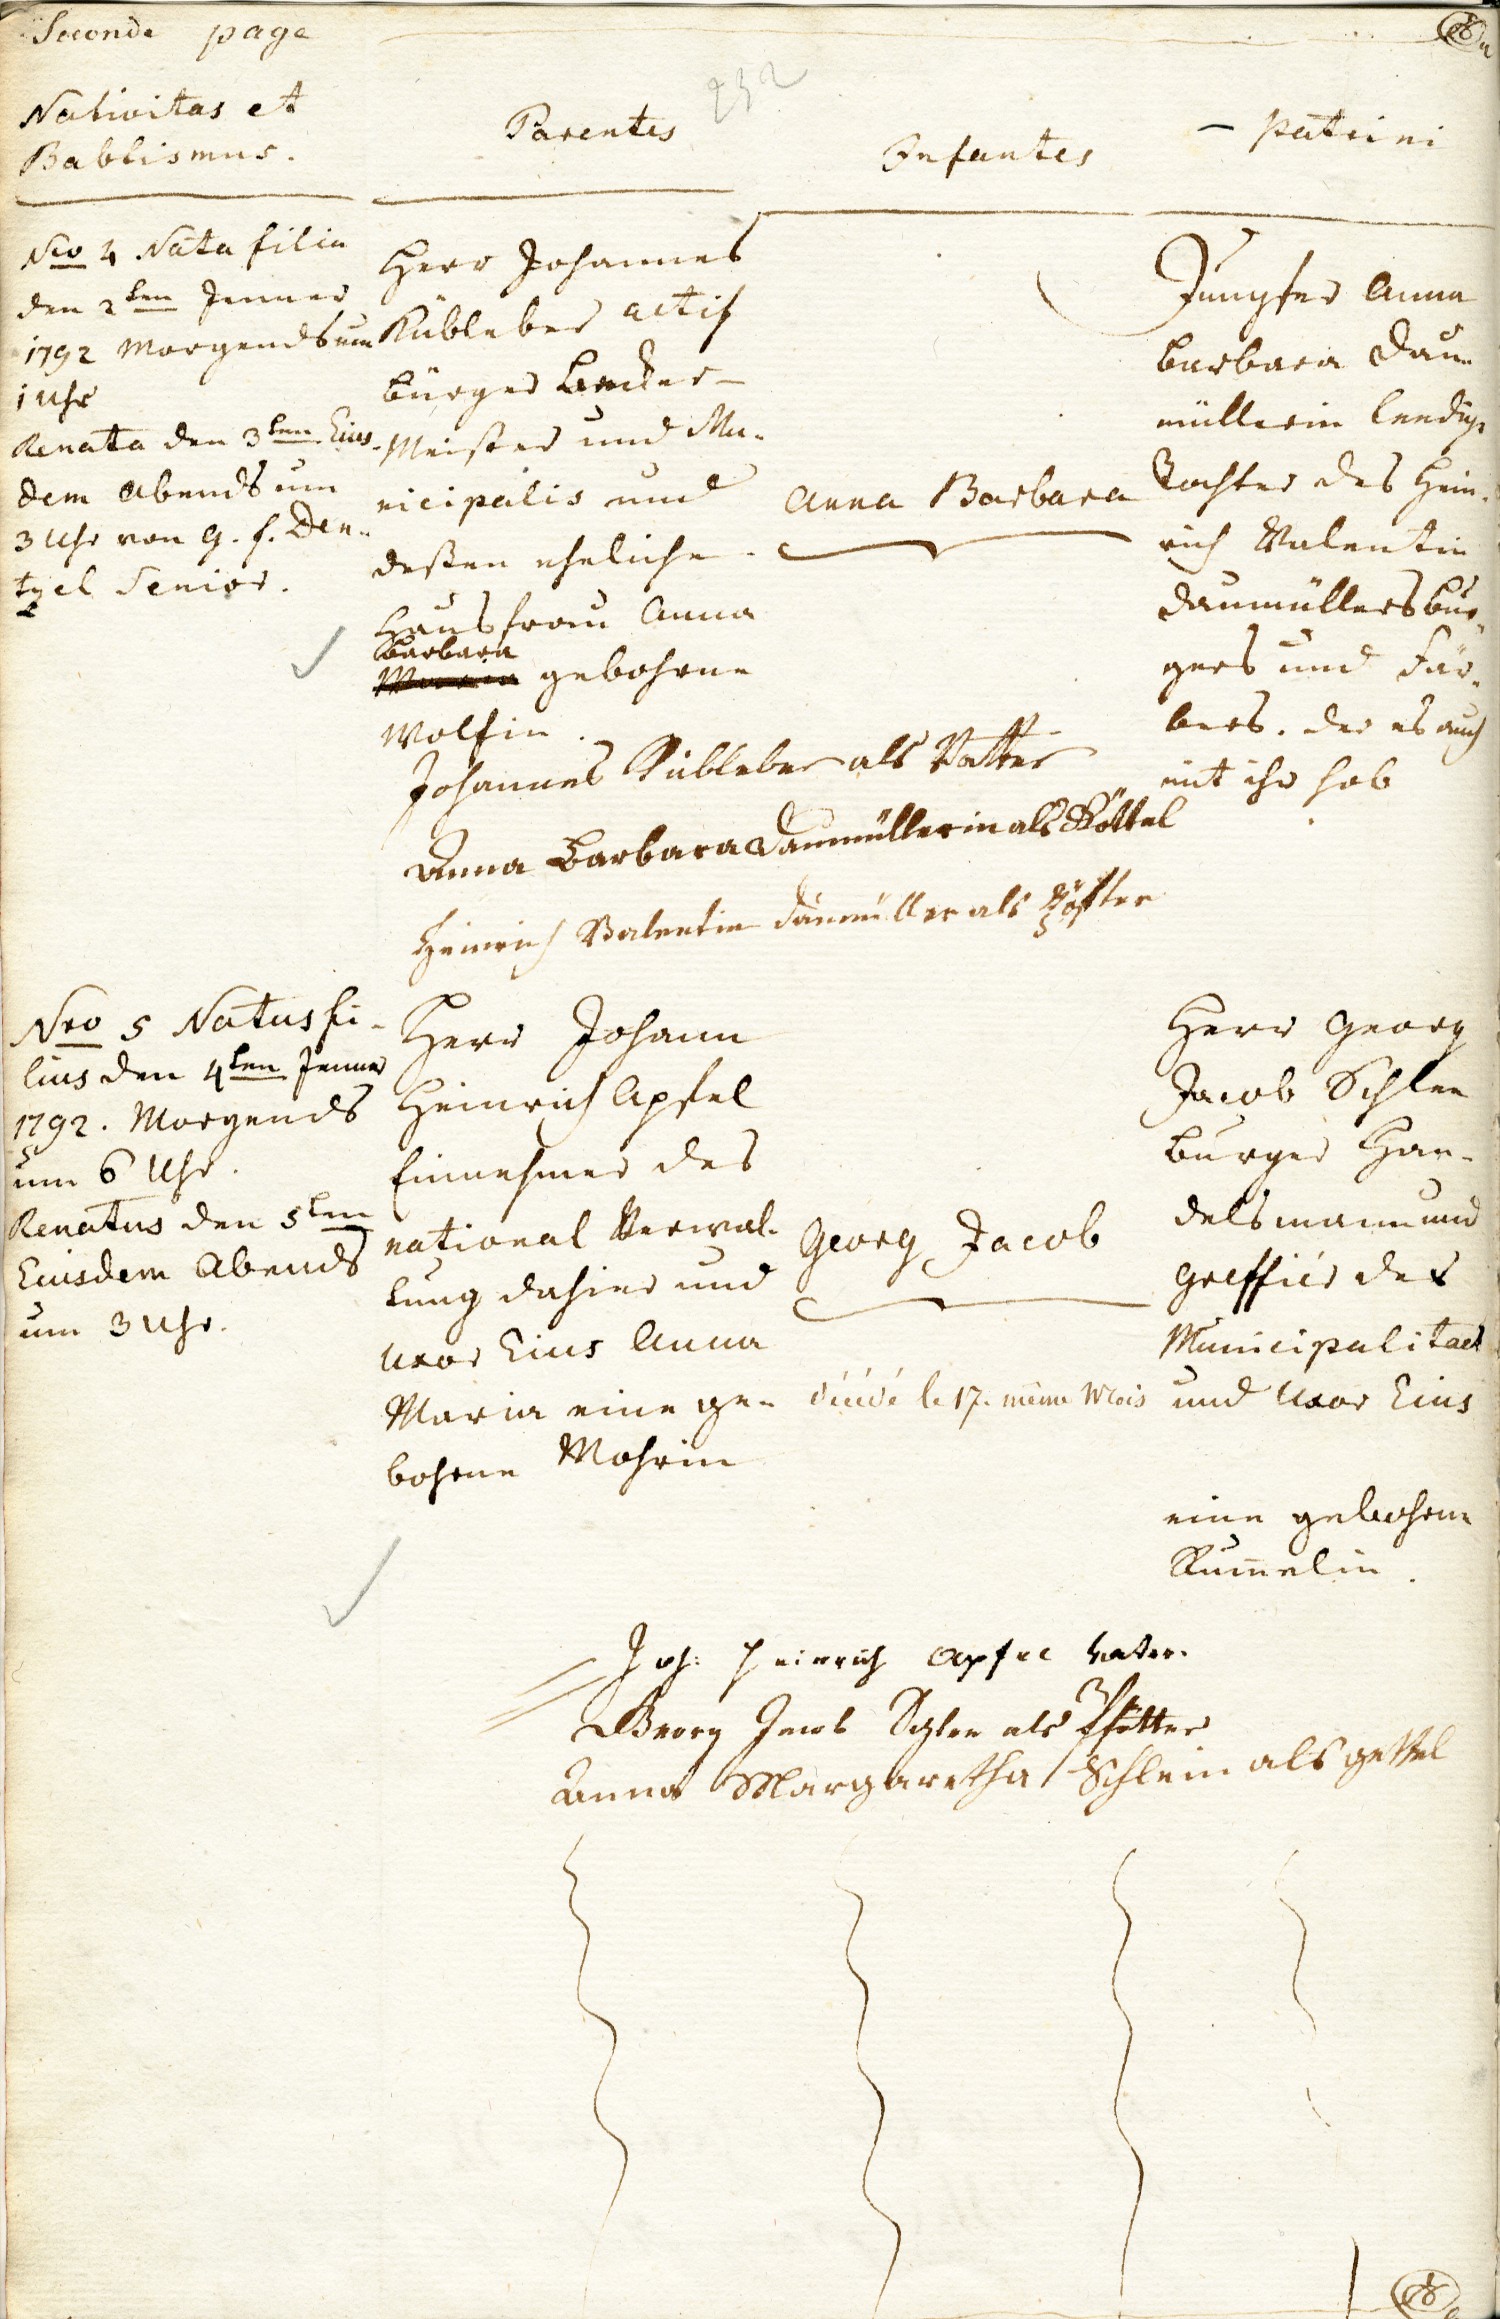 Seconde page
232
Nativitas et
Babtismus.
Parentes
Infantes
– patrini
Nro 4 Nata filia
den 2ten Jenner
1792 Morgends um
1 Uhr
Renata den 3ten Eius-
dem Abends um
3 Uhr von G. f. Den-
tzel Senior.
Herr Johannes
Kübleber actif
bürger Becker-
Meister und Mu-
nicipalis und
deßen eheliche
Hausfrau Anna
Barbara
gebohrne
Wolfin.
Anna Barbara
Jungfer Anna
Barbara Dau-
müllerin leedige
Tochter des Hein-
rich Valentin
Daumüllers bür-
gers und Fär-
bers. der es auch
mit ihr hob
Johannes Kübleber als Vatter
Anna Barbara Daumüllerin als Göttel
Heinrich Valentin Daumüller als
Nro 5 Natus fi-
lius den 4ten Jenner
1792. Morgends
um 6 Uhr.
Renatus den 5ten
Eiusdem Abends
um 3 Uhr.
Herr Johann
Heinrich Apfel
Einnehmer des
national Verwal-
tung dahier und
Uxor Eius Anna
Maria eine ge-
bohrne Mohrin
Georg Jacob
le 17. même Mois
Herr Georg
Jacob Schlee
Burger Han-
delsmann und
Greffier der
Municipalitaet
und Uxor Eius
eine gebohrne
Rum̄elin.
Joh: Heinrich Apfel Vater.
Georg Jacob Schlee als Pfötter
Anna Margaretha Schlein als gettel